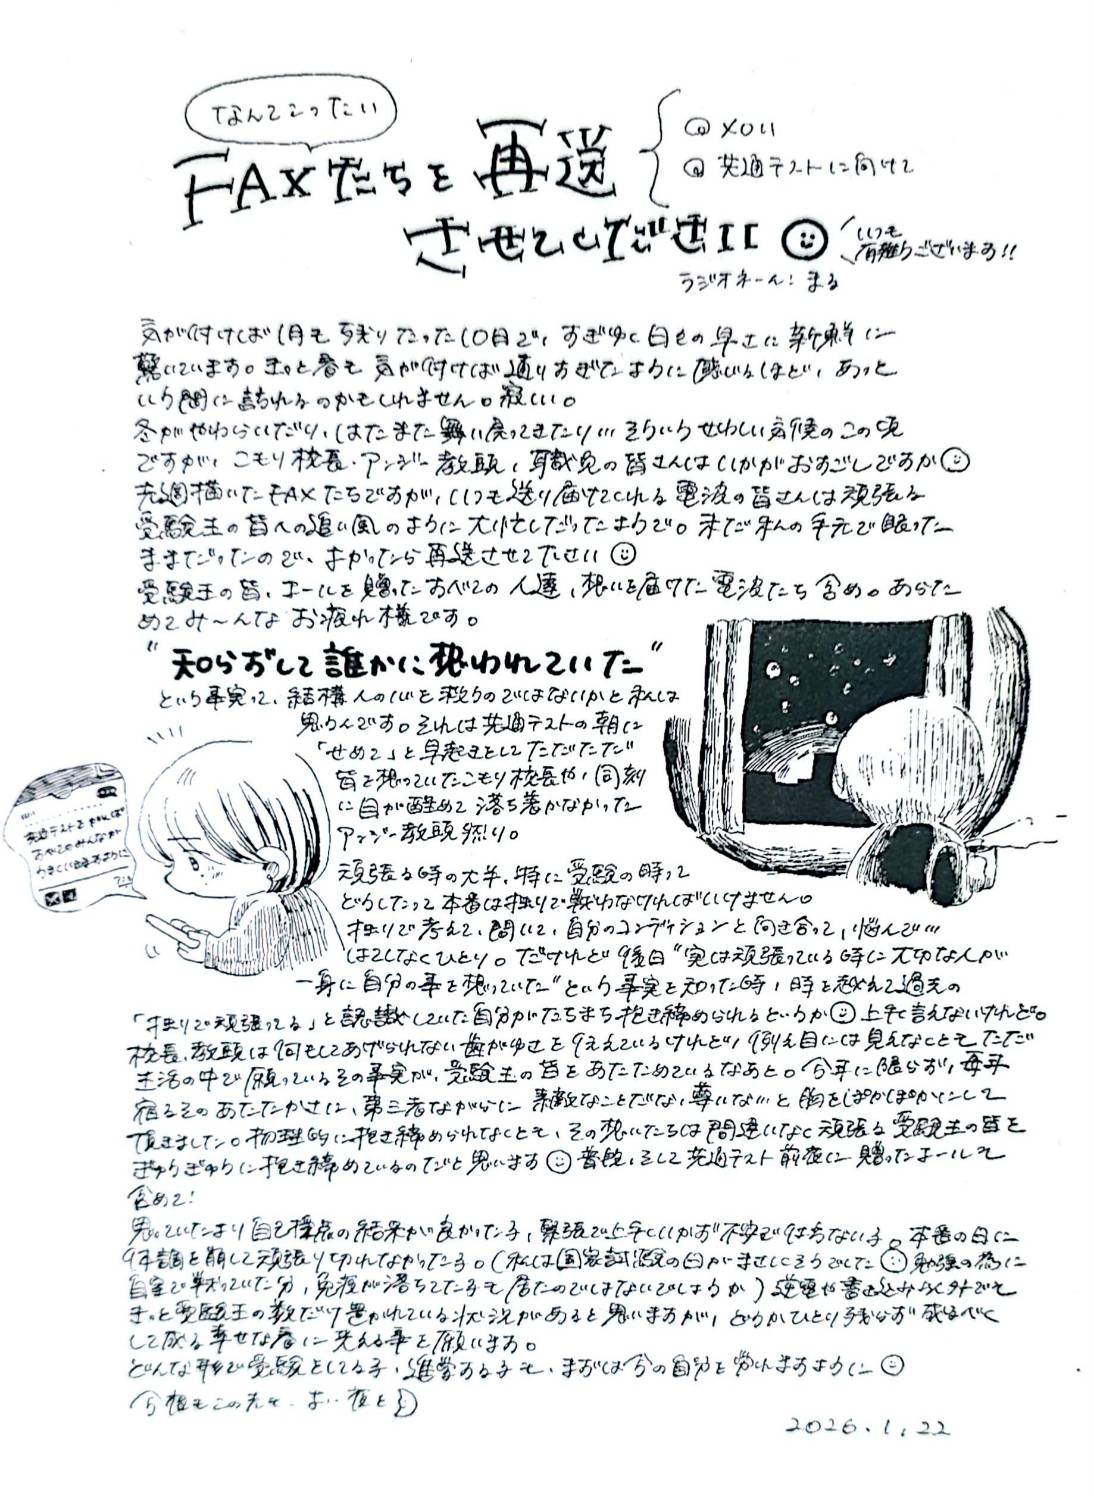 なんてこったい
FAXたちを再送
させてください
@ XOU
@ 共通テストに向けて
いつも
有難うございます!!
ラジオネーム:まる
気が付けば1月も残りたった10日で、すぎゆく日々の早さに新鮮に
驚いています。きっと春も気が付けば通りすぎたように感じるほど、あっと
いう間に訪れるのかもしれません。寂しい。
冬がやわらいだり、はたまた舞い戻ってきたり…そういうせわしい気候のこの頃
ですが、こもり校長・アンジー教頭、職員の皆さんはいかがおすごしですか
先週描いたFAXたちですが、いつも送り届けてくれる電波の皆さんは頑張る
受験生の皆への追い風のように大忙しだったようで。まだ私の手元で眠った
ままだったので、よかったら再送させて下さい
受験生の皆、エールを贈ったすべての人達、想いを届けた電波たち含め。あらた
めてみ〜んなお疲れ様です。
"知らずして誰かに想われていた"
という事実って、結構人の心を救うのではないかと私は
思うんです。それは共通テストの朝に
「せめて」と早起きをしてただただただ
皆を想っていたこもり校長や、同刻
に目が醒めて落ち着かなかった
アンジー教頭然り。
共通テストをがんば
るみんなが
頑張る時の大半、特に受験の時って
どうしたって本番は独りで戦わなければいけません。
独りで考えて、聞いて、自分のコンディションと向き合って、悩んで…
はてしなくひとり。だけれど後日"実は頑張っている時に大切な人が
一身に自分の事を想っていた"という事実を知った時、時を越えて過去の
「独りで頑張ってる」と認識していた自分がたちまち抱き締められるというか 上手く言えないけれど。
校長、教頭は何もしてあげられない歯がゆさを伝えているけれど、例え目には見えなくともただ
生活の中で願っているその事実が、受験生の皆をあたためているなあと。今年に限らず、毎年
宿るそのあたたかさに、第三者ながらに素敵なことだな、尊いな…と胸をぽかぽかにして
頂きました。物理的に抱き締められなくとも、その想いたちは間違いなく頑張る受験生の皆を
ぎゅうぎゅうに抱き締めているのだと思います 普段、そして共通テスト前夜に贈ったエールも
含めて!
思っていたより自己採点の結果が良かった子、緊張で上手くいかず不安で仕方ない子。本番の日に
体調を崩して頑張り切れなかった子。(私は国家試験の日がまさしくそうでした 勉強の為に
自室で戦っていた分、免疫が落ちてた子も居たのではないでしょうか)逆電や書き込み以外でも
きっと受験生の数だけ置かれている状況があると思いますが、どうかひとり残らず成るべく
して成る幸せな春に笑える事を願います。
どんな形で受験をしてる子、進学する子も、まずは今の自分を労れますように
今夜もこの先も、よい夜を
2026.1.22